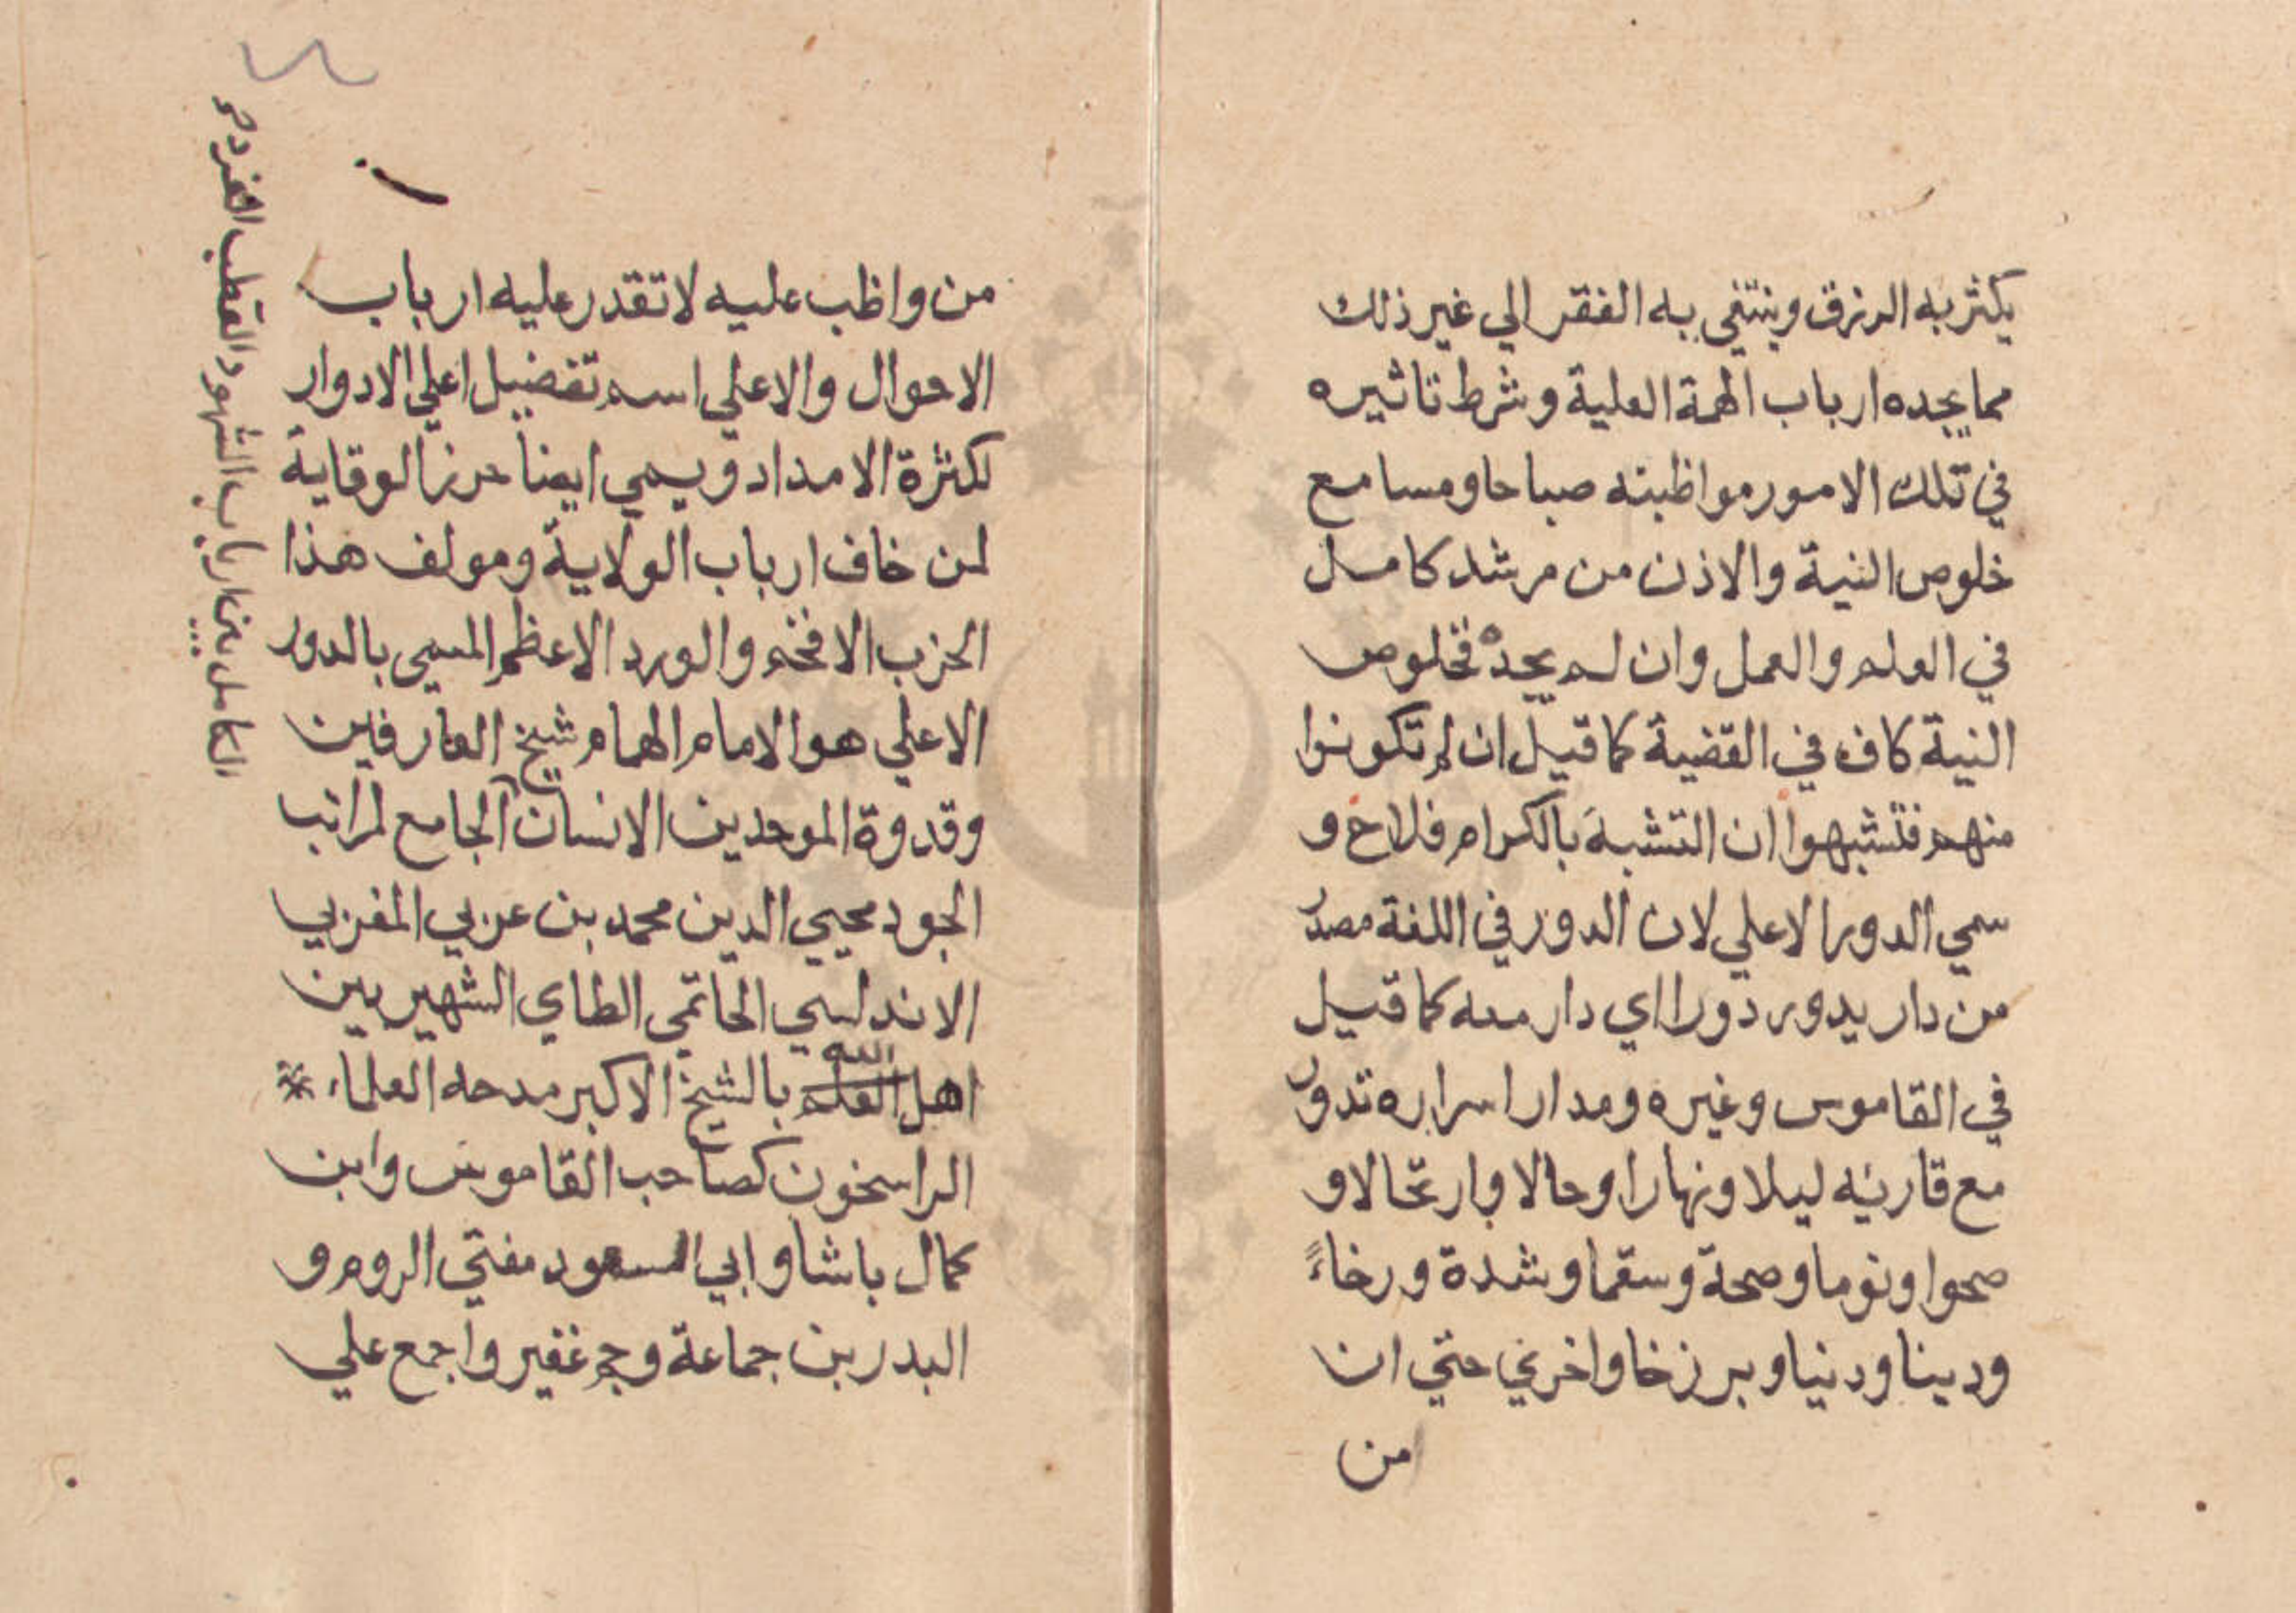 يكثر به الرزق وينتفي به الفقر الي غير ذلك
مما يجده ارباب الهمة العلية وشرط تاثيره
في تلك الامور مواظبته صباحا ومسا مع
خلوص النية والاذن من مرشد كامل
في العلم والعمل وان لم يجده فخلوص
النية كاف في القضية كما قيل ان لم تكونوا
منهم فتشبهوا ان التشبه بالكرام فلاح و
سمي الدور الاعلي لان الدور في اللغة مصدر
من دار يدور دورا اي دار معه كما قيل
في القاموس وغيره ومدار اسراره تدور
مع قاريه ليلا ونهارا وحالا وارتحالا و
صحوا ونوما وصحة وسقما وشدة ورخاءً
ودينا ودنيا وبرزخا واخري حتي ان
من
من واظب عليه لا تقدر عليه ارباب
الاحوال والاعلي اسم تفضيل اعلي الادوار
لكثرة الامداد ويسمي ايضا حرز الوقاية
لمن خاف ارباب الولاية ومولف هذا
الحزب الافخم والورد الاعظم المسمي بالدور
الاعلي هو الامام الهمام شيخ العارفين
وقدوة الموحدين الانسان الجامع لمراتب
الجود محيي الدين محمد بن عربي المغربي
الاندلسي الحاتمي الطاي الشهير بين
اهل العلم الله بالشيخ الاكبر مدحه العلماء
الراسخون كصاحب القاموس وابن
كمال باشا وابي السعود مفتي الروم و
البدر بن جماعة وجم غفير واجمع علي
الكامل بين ارباب الشهود القطب الفرد